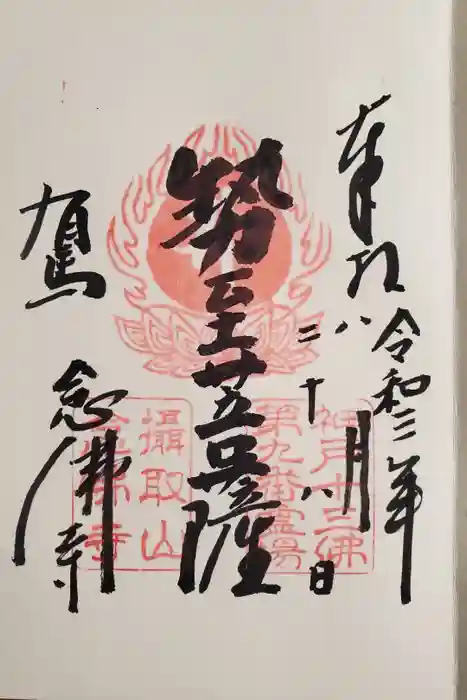 奉拝
令和三年
八月
二十八日
勢至廿五菩薩
有馬
念佛寺
神戸十三佛
第九番霊場
攝取山
念佛寺